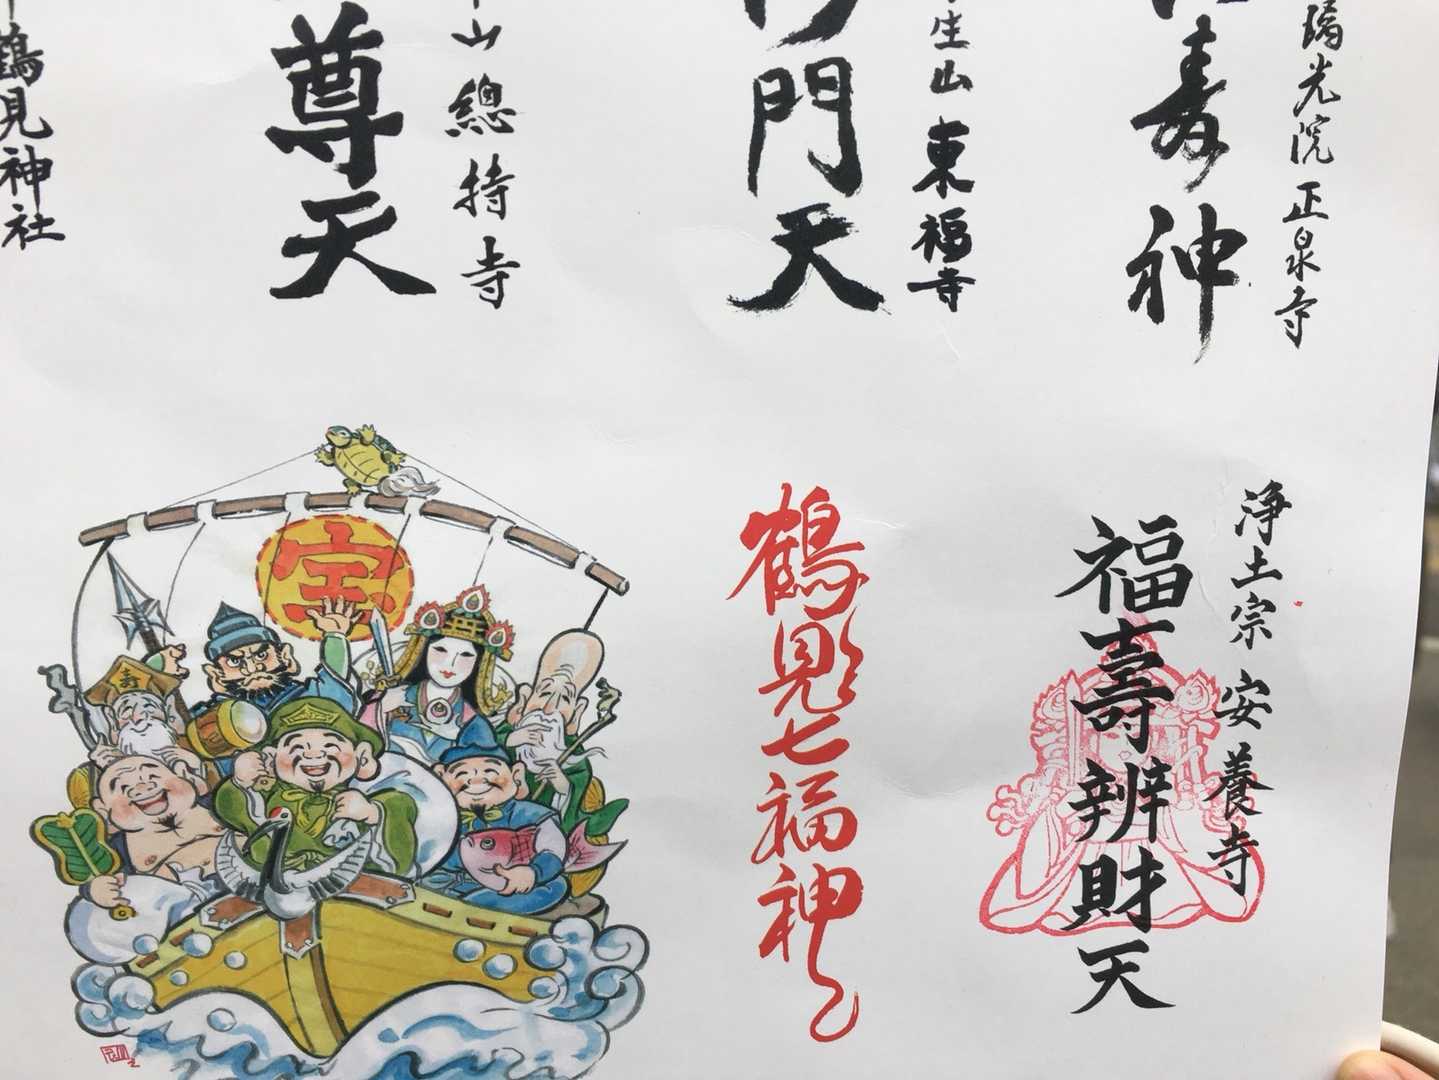 璃光院 正泉寺
寿神
生山 東福寺
門天
山 總持寺
尊天
鶴見神社
浄土宗 安養寺
福壽辨財天
鶴見七福神
宝
寿